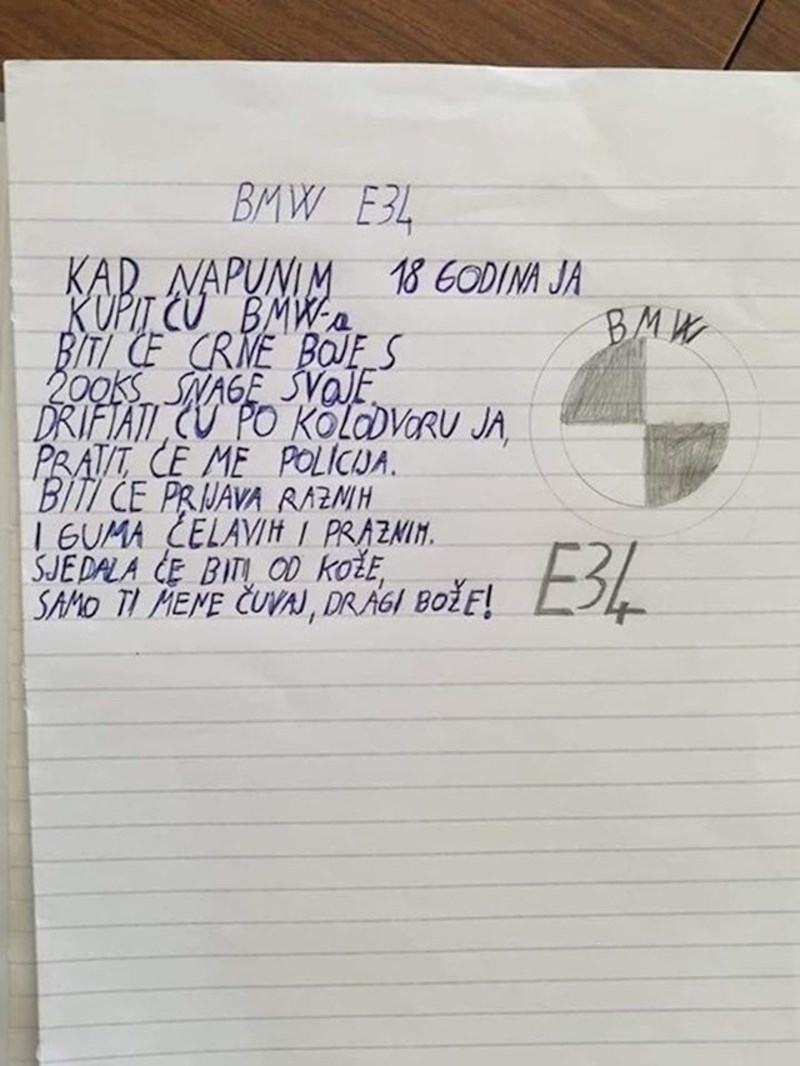 BMW E34
KAD NAPUNIM 18 GODINA JA
KUPIT ĆU BMW-a
BITI ĆE CRNE BOJE S
200KS SNAGE SVOJE.
DRIFTATI ĆU PO KOLODVORU JA,
PRATIT ĆE ME POLICIJA.
BITI ĆE PRIJAVA RAZNIH
I GUMA ĆELAVIH I PRAZNIH.
SJEDALA ĆE BITI OD KOŽE,
SAMO TI MENE ČUVAJ, DRAGI BOŽE!
BMW
E34